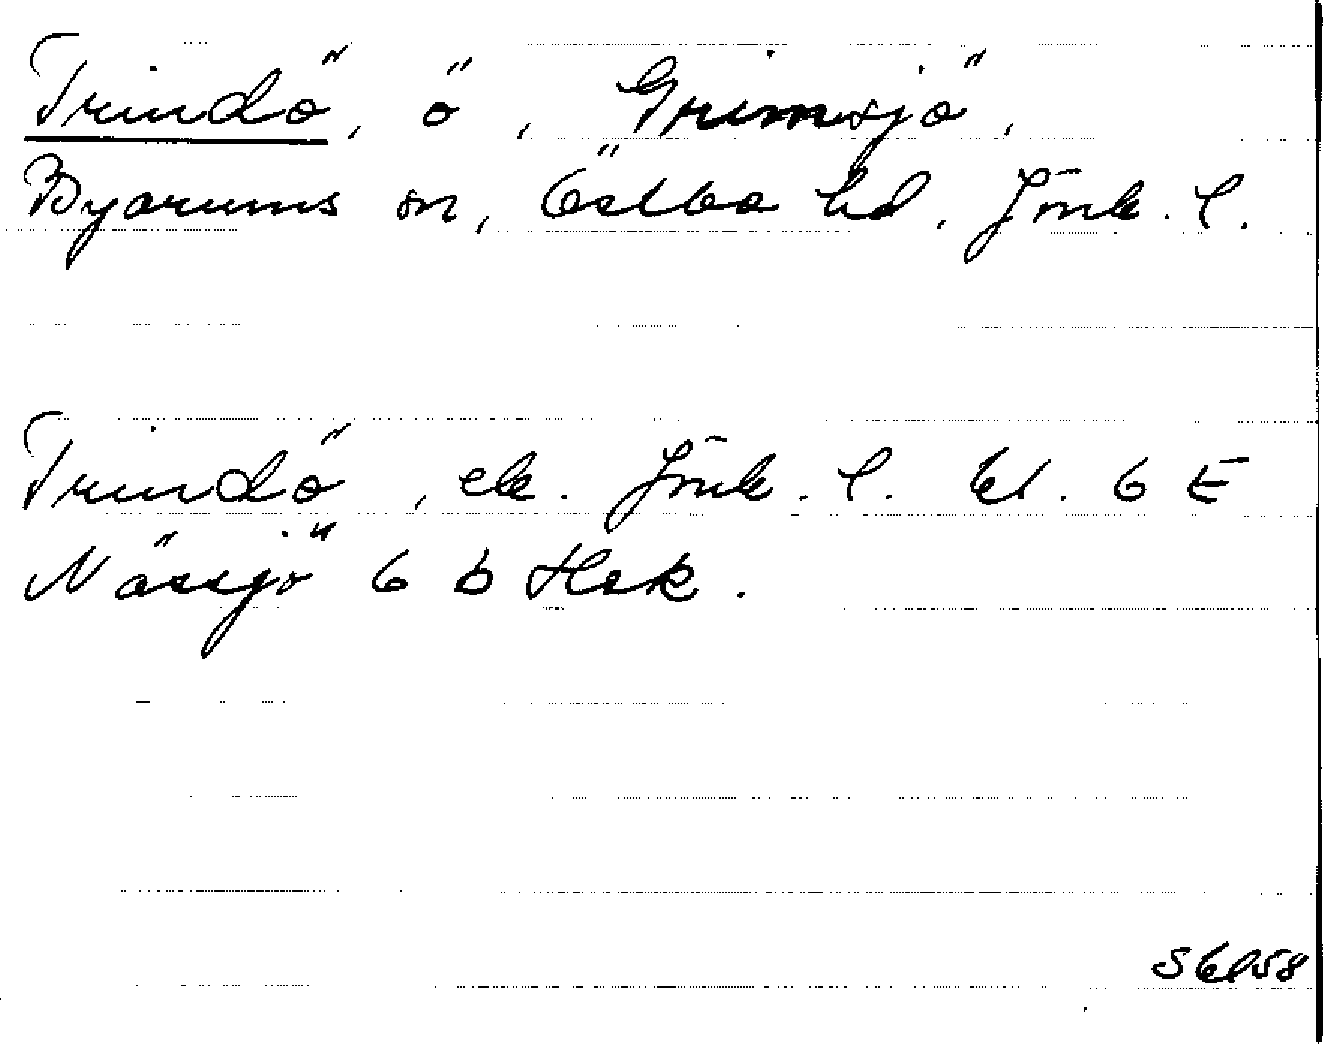 Trindö, ö, Grimsjö,
Byarums sn, Östbo hd. Jönk. l.
Trindö, ek. Jönk. l. bl. 6 E
Nässjö 6 b Hsk.